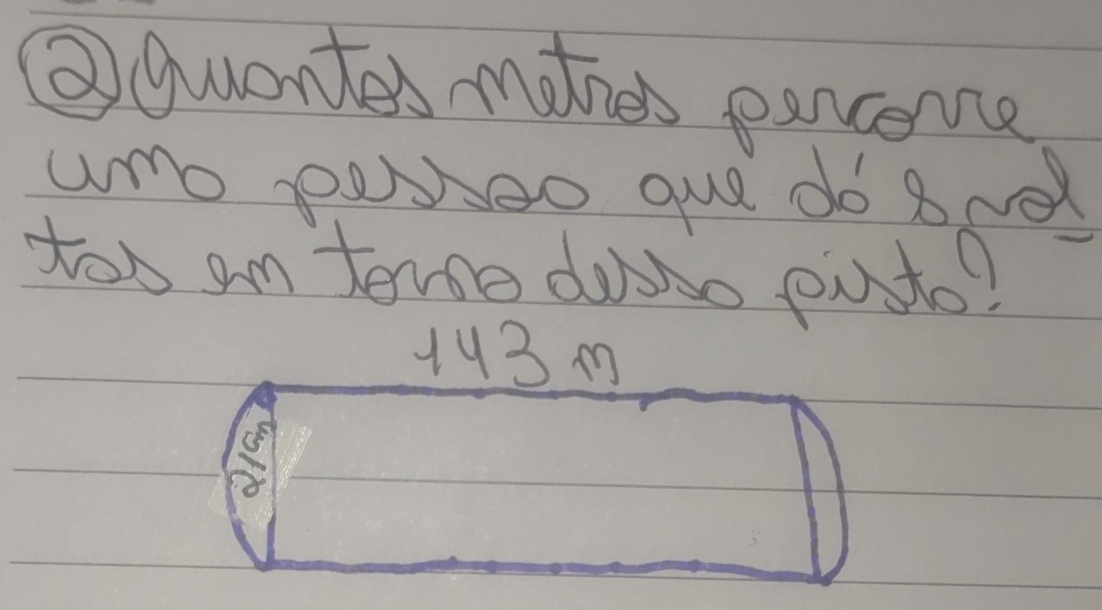 ② Quantos metros percorre
uma pessoa que dá 8 vol
tas em torno dessa pista?
143 m
21cm